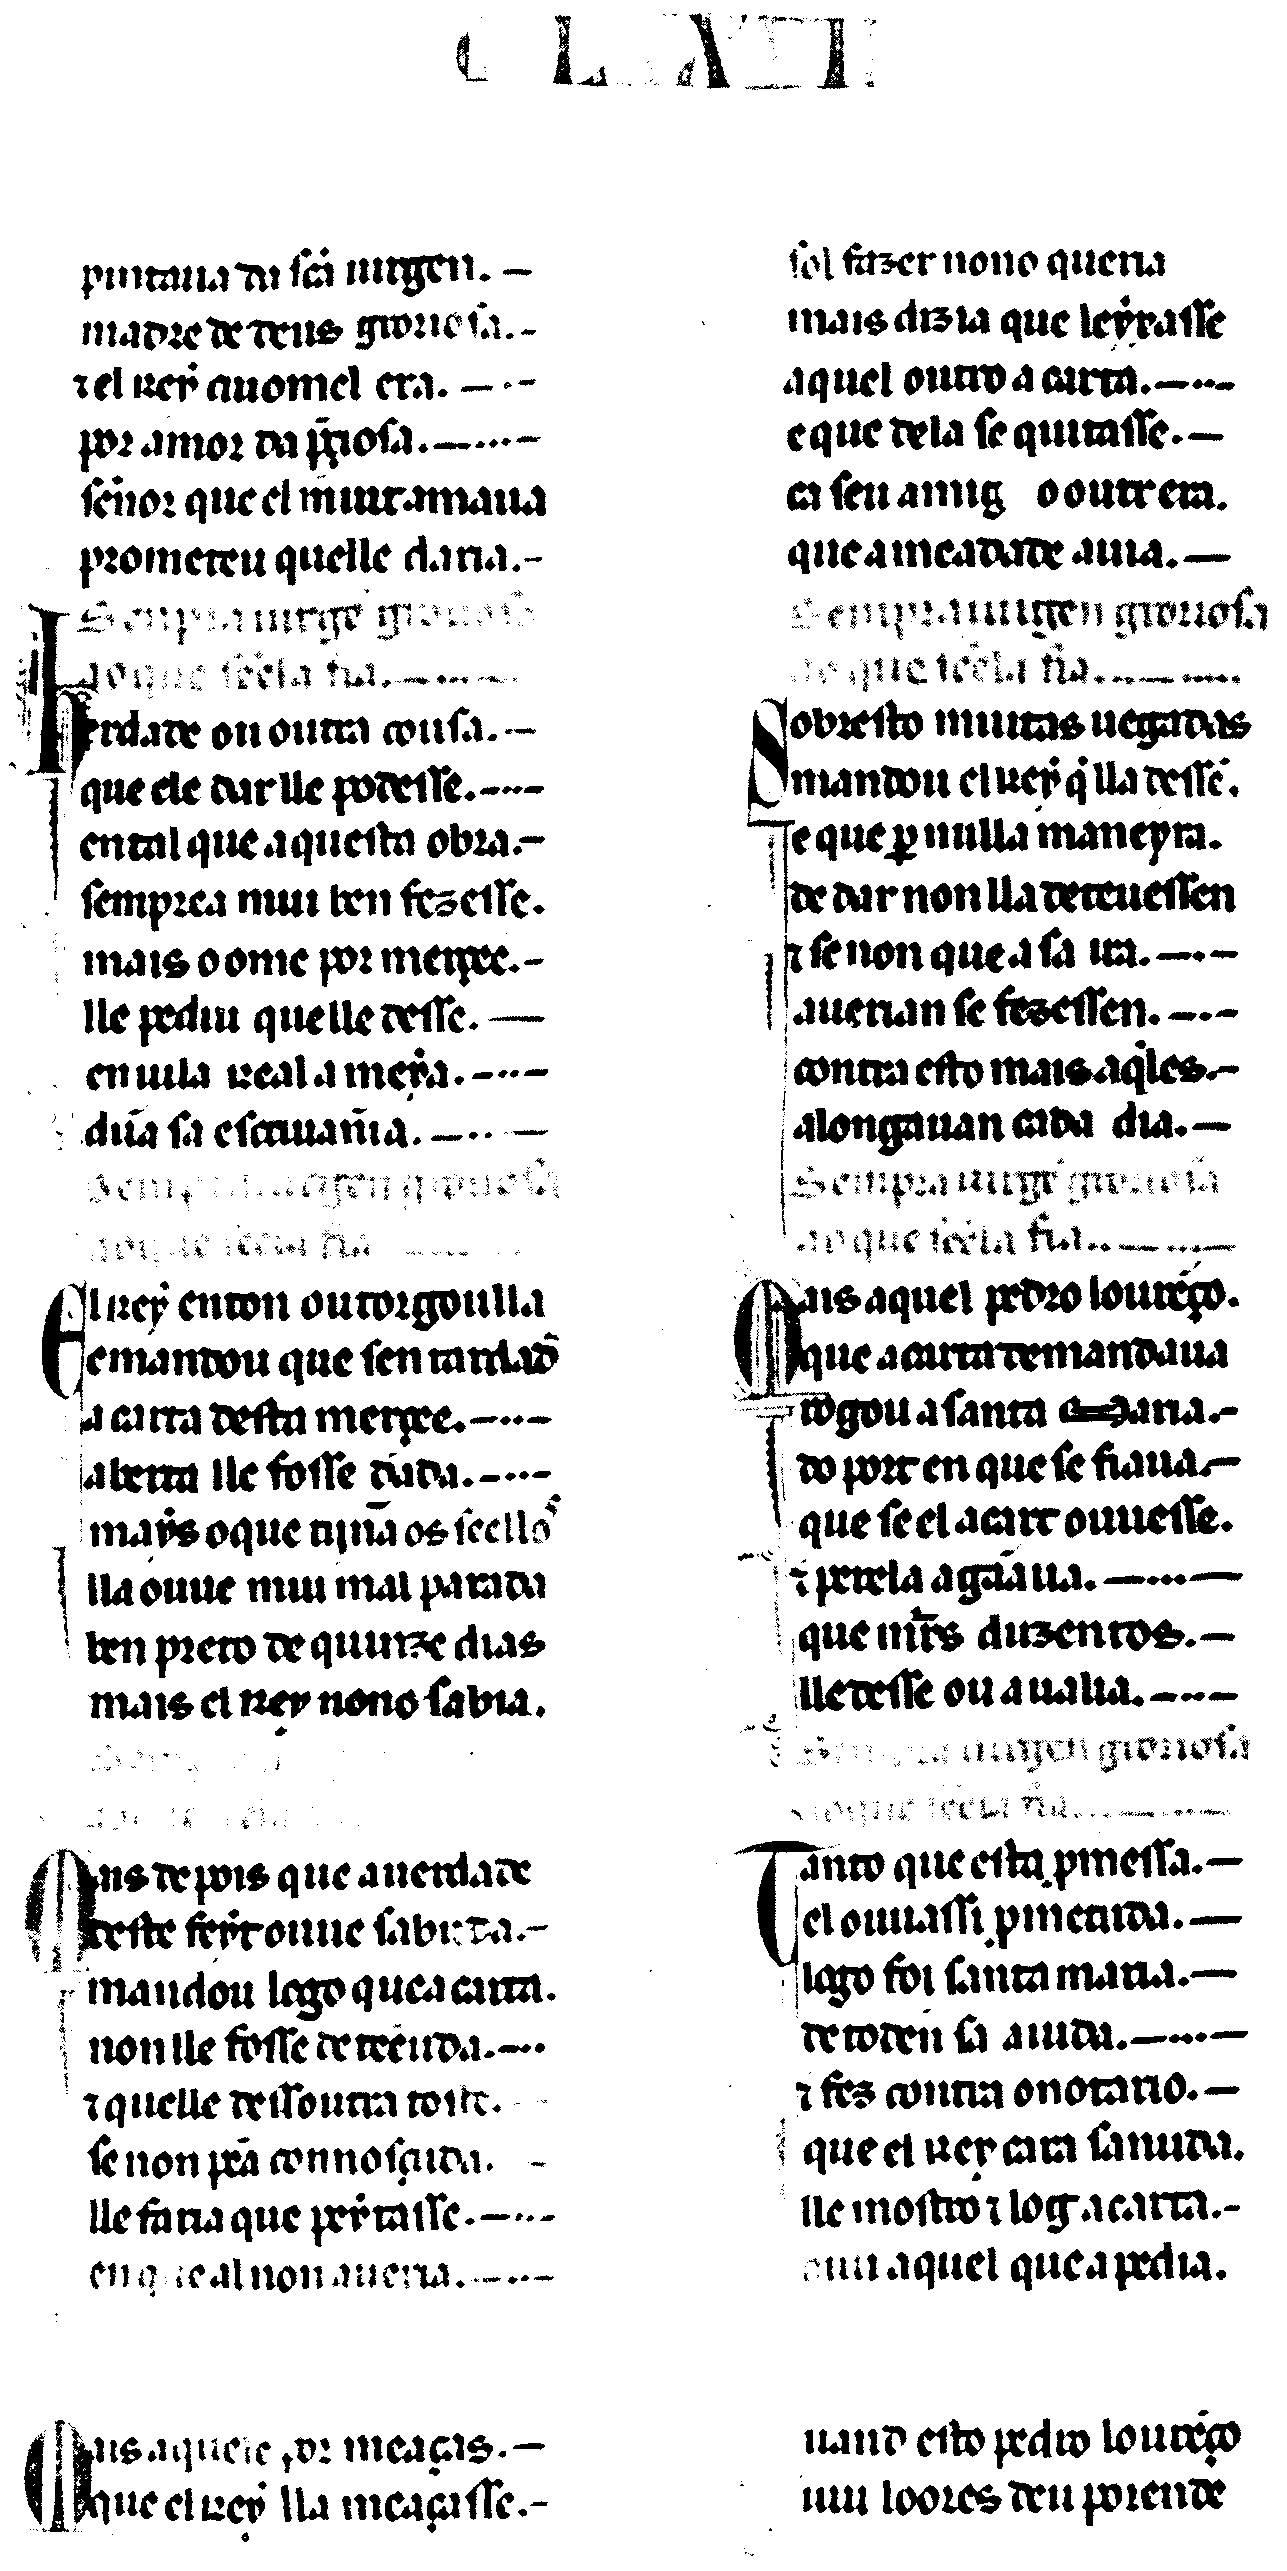 pintaua da sc̃a uirgen. —
madre de deus groriosa. -
⁊ el rey auomel era. —·-
por amor da g̃riosa. —···—
sennor que el muit amaua
prometeu quelle daria. -
Sempra uirgẽ groriosa
ao que sẽela fia. —···—
herdade ou outra cousa. —
que ele dar lle podesse. —··—
en tal que aquesta obra. —
semprea mui ben fezesse.
mais o ome por merçee. -
lle pediu que lle desse. —
en uila real a meỹa. —··—
dũa sa escriuanĩa. —·· —
Sempra uirgen groriosa
ao que sẽela fia
El rey enton outorgoulla
e mandou que sen tardada
a carta desta merçee. —··—
aberta lle fosse dada. —··—
mays o que tijnna os seellos
lla ouue mui mal parada
ben preto de quinze dias
mais el rey nono sabia.
Mais depois que a uerdade
deste feyt ouue sabuda. —
mandou logo que a carta.
non lle fosse deteẽuda. —··
⁊ quelle dess outra tost.
se non pẽa connosçuda. -
lle faria que peytasse. —··-
en que al non aueria. —·—
Mais aquele por meaças. —
que el rey lla meaçasse. -
sol fazer nono queria
mais dizia que leyxasse
aquel outro a carta. —··—
e que dela se quitasse. —
ca seu amig o outr era.
que a meadade auia. —
Sempra uirgen groriosa
ao que sẽela fia. —···
Sobresto muitas uegadas
mandou el rey q̃ lla dessẽ.
e que ꝑ nulla maneyra.
de dar non lla deteuessen
⁊ se non que a sa ira. —·—
auerian se fezessen. —·—
contra esto mais aq̃les. —
alongauan cada dia. —
Sempra uirgẽ groriosa
ao que sẽela fia. —···—
Mais aquel pedro lourẽço.
que a carta demandaua
rogou a santa Maria. -
do port en que se fiaua. —
que se el a cart ouuesse.
⁊ per ela a gãaua. —···—
que mr̃s duzentos. —
lle desse ou a ualia. —··—
Sempra uirgen groriosa
ao que sẽela fia. —···—
Tanto que esta ꝓmessa. —
el ouu assi ꝓmetuda. —
logo foi santa maria. —
de toden sa aiuda. —···—
⁊ fez contra o notario. —
que el rey cara sannuda.
lle mostro ⁊ log a carta. -
ouu aquel que a pedia.
uand esto pedro lourẽço
mui loores deu porende